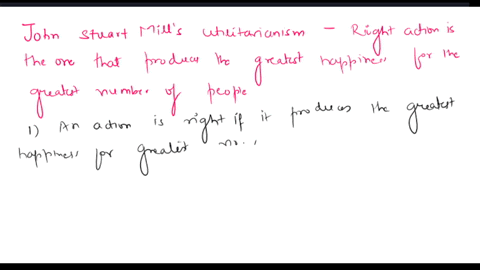 John Stuart Mill's utilitarianism - Right action is
the one that produces the greatest happiness for the
greatest number of people
1) An action is right if it produces the greatest
happiness for greatest